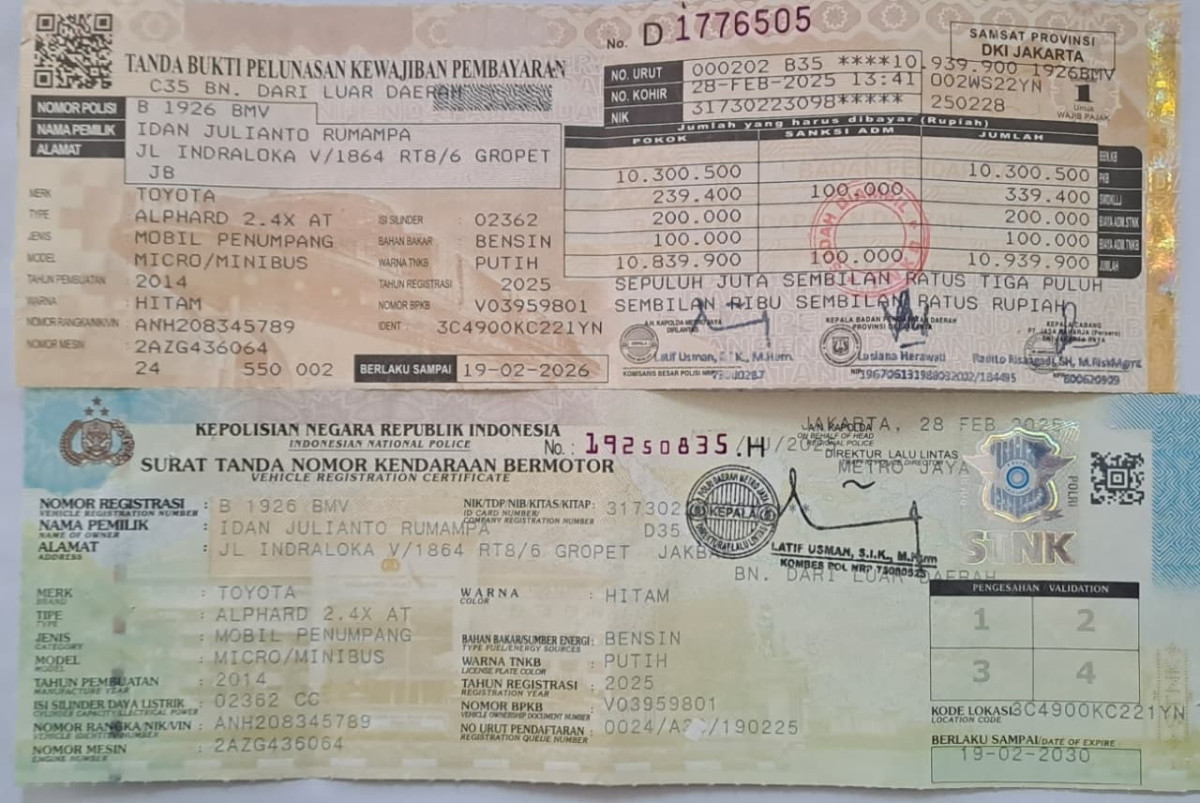 No. D 1776505
SAMSAT PROVINSI
DKI JAKARTA
TANDA BUKTI PELUNASAN KEWAJIBAN PEMBAYARAN
C35 BN. DARI LUAR DAERAH
NO. URUT 000202 B35 ****10.939.900 1926BMV
NO. KOHIR 28-FEB-2025 13:41 002WS22YN
NIK 31730223098***** 250228
1
Untuk
WAJIB PAJAK
NOMOR POLISI B 1926 BMV
NAMA PEMILIK IDAN JULIANTO RUMAMPA
ALAMAT JL INDRALOKA V/1864 RT8/6 GROPET
JB
Jumlah yang harus dibayar (Rupiah)
POKOK SANKSI ADM JUMLAH
BBN.KB
10.300.500 10.300.500 PKB
239.400 100.000 339.400 SWDKLLJ
200.000 200.000 BIAYA ADM.STNK
100.000 100.000 BIAYA ADM TNKB
10.839.900 100.000 10.939.900 JUMLAH
SEPULUH JUTA SEMBILAN RATUS TIGA PULUH
SEMBILAN RIBU SEMBILAN RATUS RUPIAH
MERK TOYOTA
TYPE ALPHARD 2.4X AT ISI SILINDER : 02362
JENIS MOBIL PENUMPANG BAHAN BAKAR : BENSIN
MODEL MICRO/MINIBUS WARNA TNKB : PUTIH
TAHUN PEMBUATAN 2014 TAHUN REGISTRASI : 2025
WARNA HITAM NOMOR BPKB : V03959801
NOMOR RANGKA/NIK/VIN ANH208345789 IDENT : 3C4900KC221YN
NOMOR MESIN 2AZG436064
24 550 002 BERLAKU SAMPAI 19-02-2026
A.N. KAPOLDA METRO JAYA
DIRLANTAS
Latif Usman, S.I.K., M.Hum.
KOMISARIS BESAR POLISI NRP
KEPALA BADAN PENDAPATAN DAERAH
PROVINSI DKI JAKARTA
Lusiana Herawati
KEPALA CABANG
KEPOLISIAN NEGARA REPUBLIK INDONESIA
INDONESIAN NATIONAL POLICE
No.: 19250835 .H
SURAT TANDA NOMOR KENDARAAN BERMOTOR
VEHICLE REGISTRATION CERTIFICATE
JAKARTA, 28 FEB 2025
A.N. KAPOLDA
ON BEHALF OF HEAD
REGIONAL POLICE
DIREKTUR LALU LINTAS
METRO JAYA
POLRI
STNK
NOMOR REGISTRASI : B 1926 BMV
VEHICLE REGISTRATION NUMBER
NAMA PEMILIK : IDAN JULIANTO RUMAMPA
NAME OF OWNER
ALAMAT : JL INDRALOKA V/1864 RT8/6 GROPET JAKBA
ADDRESS
NIK/TDP/NIB/KITAS/KITAP: 317302
ID CARD NUMBER/
COMPANY REGISTRATION NUMBER
D35
KEPALA
LATIF USMAN, S.I.K., M.Hum
KOMBES POL NRP
BN. DARI LUAR DAERAH
MERK : TOYOTA
BRAND
TIPE : ALPHARD 2.4X AT
TYPE
JENIS : MOBIL PENUMPANG
CATEGORY
MODEL : MICRO/MINIBUS
MODEL
TAHUN PEMBUATAN : 2014
MANUFACTURE YEAR
ISI SILINDER DAYA LISTRIK : 02362 CC
CYLINDER CAPACITY/ELECTRICAL POWER
NOMOR RANGKA/NIK/VIN : ANH208345789
VEHICLE IDENTITY NUMBER
NOMOR MESIN : 2AZG436064
ENGINE NUMBER
WARNA : HITAM
COLOR
BAHAN BAKAR/SUMBER ENERGI : BENSIN
TYPE FUEL/ENERGY SOURCES
WARNA TNKB : PUTIH
LICENSE PLATE COLOR
TAHUN REGISTRASI : 2025
REGISTRATION YEAR
NOMOR BPKB : V03959801
VEHICLE OWNERSHIP DOCUMENT NUMBER
NO URUT PENDAFTARAN : 0024/A2 /190225
REGISTRATION QUEUE NUMBER
PENGESAHAN / VALIDATION
1 2
3 4
KODE LOKASI 3C4900KC221YN
LOCATION CODE
BERLAKU SAMPAI/DATE OF EXPIRE :
19-02-2030